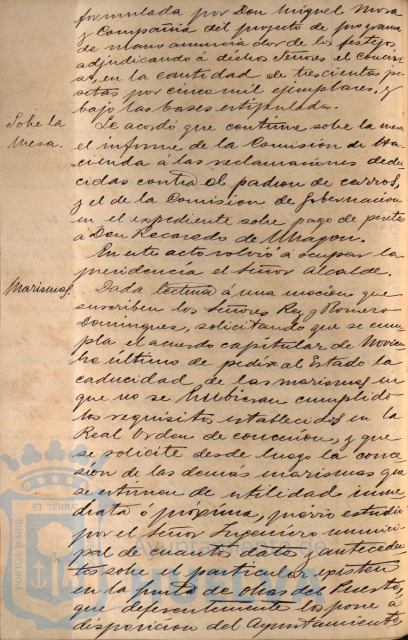 formulada por Don Miguel Mora
y Compañia del proyecto de programa
de mano anunciador de los festejos,
adjudicando á dichos Señores el concur-
so, en la cantidad de trescientas pe-
setas por cinco mil ejemplares, y
bajo las bases estipuladas.
Sobre la
Mesa.
Se acordó que continue sobre la mesa
el informe de la Comision de Ha-
cienda á las reclamaciones dedu-
cidas contra el padron de carros,
y el de la Comision de Gobernacion
en el expediente sobre pago de
á Don Recaredo de Uhagon.
En este acto volvió á ocupar la
presidencia el Señor Alcalde.
Marismas.
Dada lectura á una mocion que
suscriben los Señores Rey y Romero
Dominguez, solicitando que se cum-
pla el acuerdo capitular de Noviem-
bre último de pedir al Estado la
caducidad de las marismas en
que no se hubieran cumplido
los requisitos establecidos en la
Real Orden de concesion, y que
se solicite desde luego la conce-
sion de las demás marismas que
se estimen de utilidad inme-
diata ó proxima, prévio estudio
por el Señor Ingeniero munici-
pal de cuantos datos y antecede-
tes sobre el particular existen
en la Junta de obras del Puerto,
que deferentemente los pone á
disposicion del Ayuntamiento
PORTUS MARIS
ET TERRE
Ayuntamiento de
HUELVA